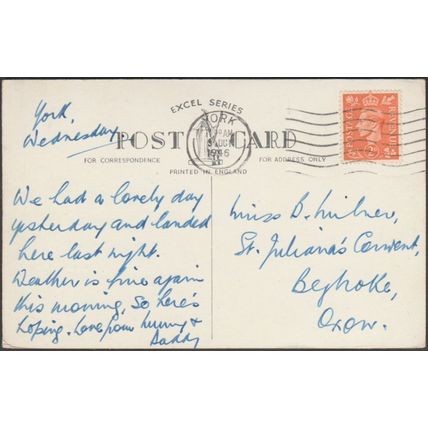 EXCEL SERIES
POST CARD
FOR CORRESPONDENCE
FOR ADDRESS ONLY
PRINTED IN ENGLAND
YORK
AM
OCT
1946
POSTAGE
REVENUE
York,
Wednesday.
We had a lovely day
yesterday and landed
here last night.
Weather is fine again
this morning, so here's
hoping. Love from Mummy &
Daddy
Miss B. Milner,
St. Juliana's Convent,
Begbroke,
Oxon.